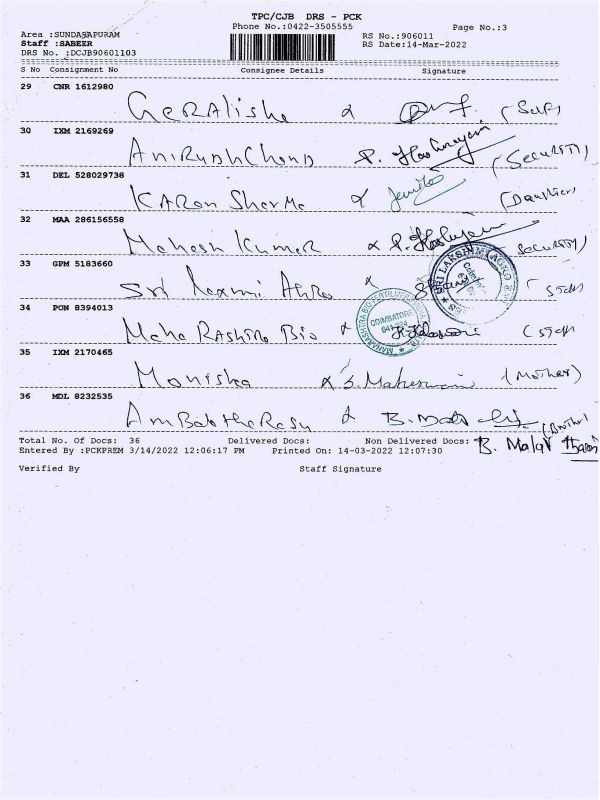 TPC/CJB DRS - PCK
Phone No.:0422-3505555
Page No.:3
Area :SUNDAJAPURAM
RS No.:906011
Staff :SABEER
RS Date:14-Mar-2022
DRS No. :DCJB90601103
S No Consignment No Consignee Details Signature
29 CNR 1612980
30 IXM 2169269
Anirudh Chand (Security)
31 DEL 528029738
Karan Sharma
32 MAA 286156558
Mahesh Kumar Security)
33 GPM 5183660
SRI LAKSHMI AGRO
Sri Laxmi Agro (Staff
34 PON 8394013
MAHARASHTRA BIO FERTILIZERS INDIA
COIMBATORE
Maha Rashtra Bio (Staff
35 IXM 2170465
Monisha S. Maheswari (Mother)
36 MDL 8232535
(Brother)
Total No. Of Docs: 36 Delivered Docs: Non Delivered Docs:
B. Malar
Entered By :PCKPREM 3/14/2022 12:06:17 PM Printed On: 14-03-2022 12:07:30
Verified By Staff Signature